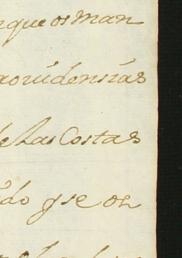 que os man
prouidensias
de las Costas
ido y se os